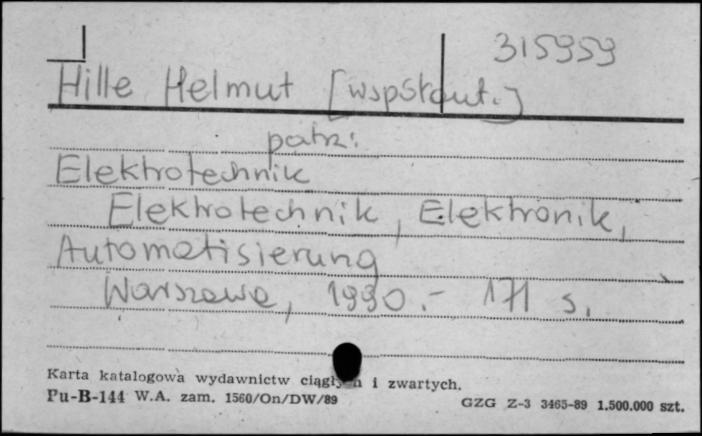 315959
Hille Helmut [współaut.]
patrz:
Elektrotechnik
Elektrotechnik, Elektronik,
Automatisierung
Warszawa, 1990.- 171 s.
Karta katalogowa wydawnictw ciągłych i zwartych.
Pu-B-144 W.A. zam. 1560/On/DW/89
GZG Z-3 3465-89 1.500.000 szt.